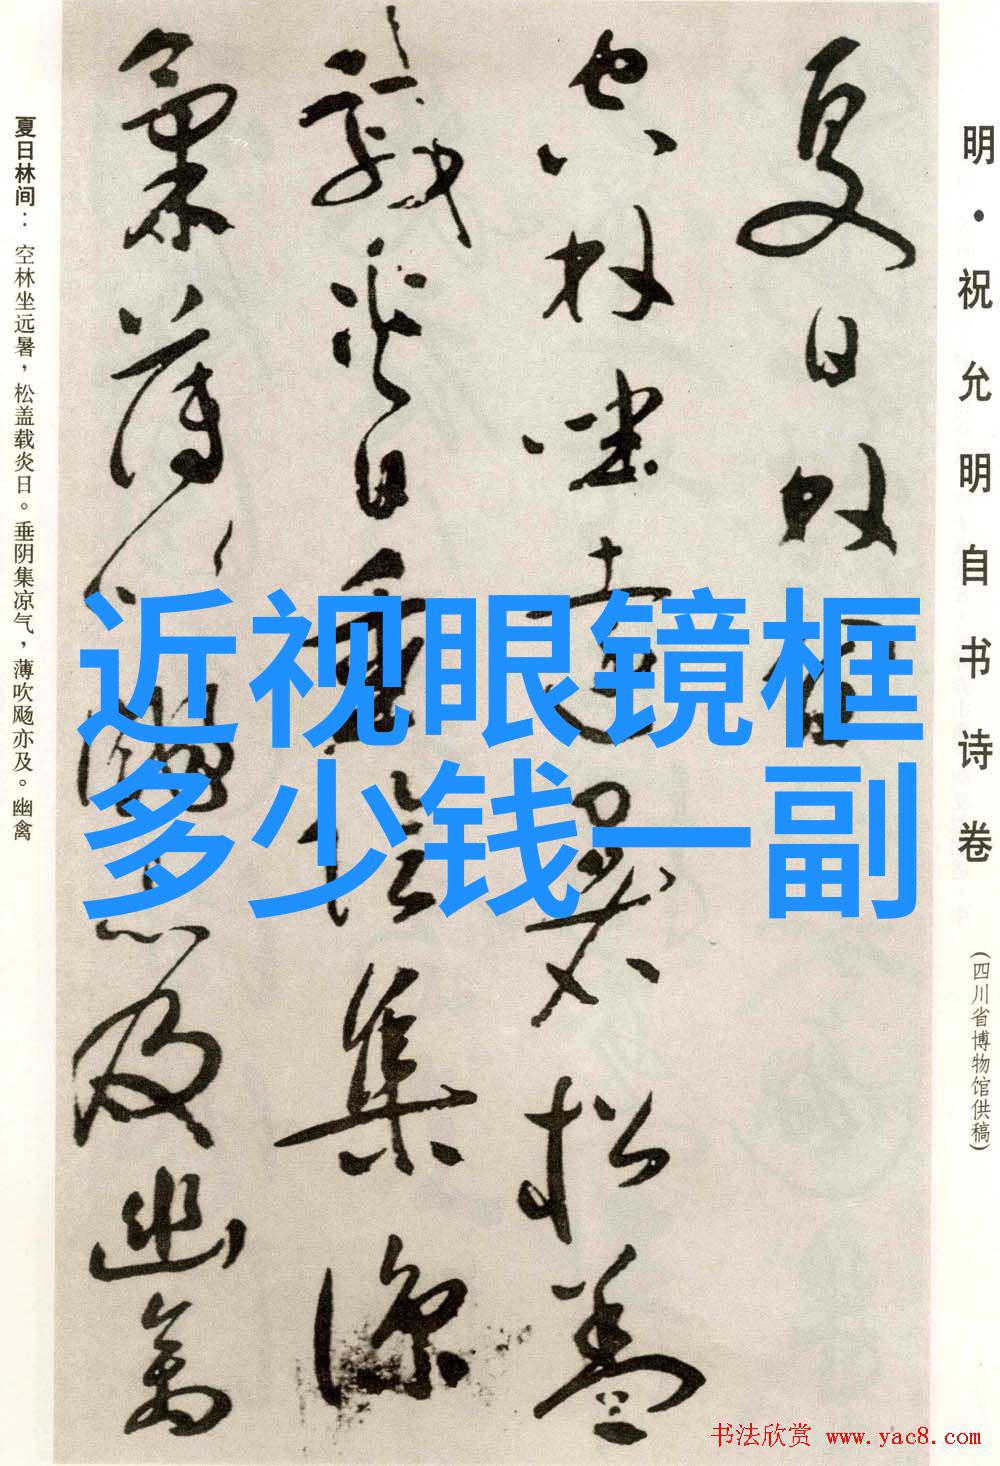 明·祝允明自书诗卷
(四川省博物馆供稿)
夏日林间
空林坐远暑松盖
载炎日垂阴集凉
气薄吹飏亦及幽禽
夏日林间：空林坐远暑，松盖载炎日。垂阴集凉气，薄吹飏亦及。幽禽
近视眼镜框
多少钱一副
书法欣赏 www.yac8.com